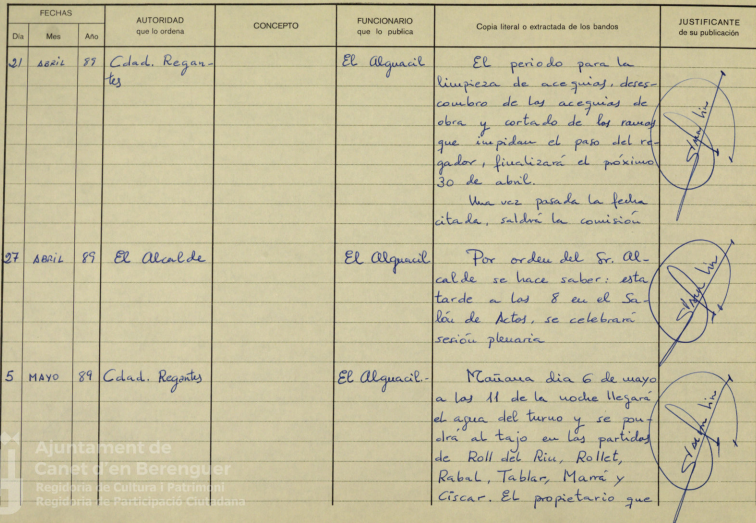 FECHAS
AUTORIDAD
que lo ordena
CONCEPTO
FUNCIONARIO
que lo publica
Copia literal o extractada de los bandos
JUSTIFICANTE
de su publicación
Día Mes Año
21 ABRIL 89 Cdad. Regan-
tes
El Alguacil
El periodo para la
limpieza de acequias, deses-
combro de las acequias de
obra y cortado de las ramas
que impidan el paso del re-
gador, finalizará el próximo
30 de abril.
Una vez pasada la fecha
citada, saldrá la comisión
27 ABRIL 89 El Alcalde
El Alguacil
Por orden del Sr. Al-
calde se hace saber: esta
tarde a las 8 en el Sa-
lón de Actos, se celebrará
sesión plenaria
5 MAYO 89 Cdad. Regantes
El Alguacil.-
Mañana dia 6 de mayo
a las 11 de la noche llegará
el agua del turno y se pon-
drá al tajo en las partidas
de Roll del Riu, Rollet,
Rabal, Tablar, Marrá y
Ciscar. El propietario que
Ajuntament de
Canet d'en Berenguer
Regidoria de Cultura i Patrimoni
Regidoria de Participació Ciutadana